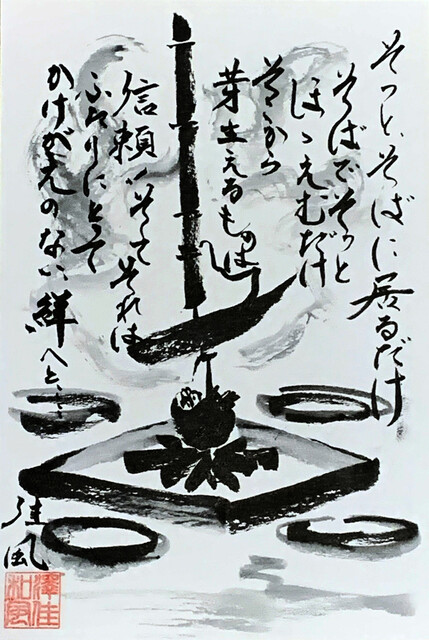 そっと、そばに居るだけ
そばでそっと
ほゝえむだけ
そこから
芽生えるものは
信頼、そしてそれは
ふたりにとって
かけがえのない絆へと…
佳風